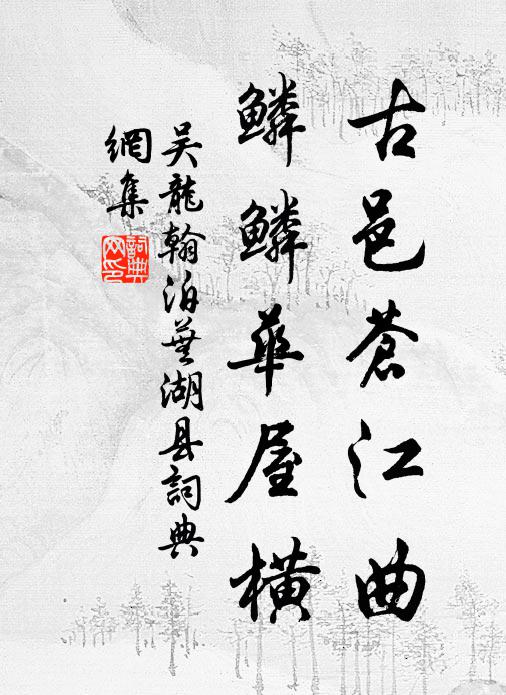 古邑蒼江曲
鱗鱗華屋橫
吴龍翰泊蕪湖县詞典
網集
詞典
网印